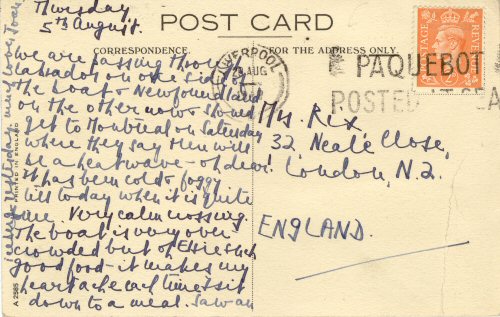 POST CARD
CORRESPONDENCE.
FOR THE ADDRESS ONLY.
Thursday
5th August.
We are passing through
Labrador on one side of
the boat & Newfoundland
on the other now & should
get to Montreal on Saturday
where they say there will
be a heatwave - oh dear!
It has been cold & foggy
till today when it is quite
fine. Very calm crossing.
The boat is very over
crowded but oh Elsie such
good food - it makes my
heart ache each time I sit
down to a meal. Saw an
iceberg yesterday. much love, Joan
Mrs. Rix,
32, Neale Close,
London, N.2.
ENGLAND.
LIVERPOOL
AUG
PAQUEBOT
POSTED AT SEA
POSTAGE
REVENUE
PRINTED IN ENGLAND
A 2585